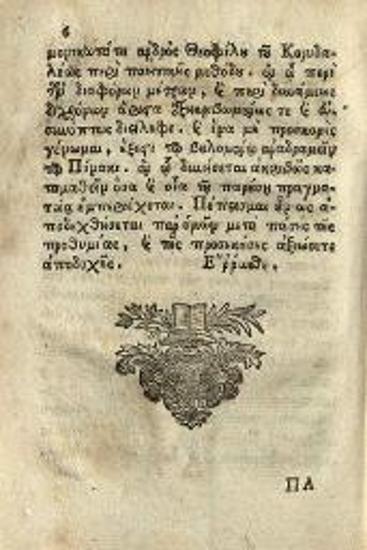 6
μονικωτάτου ἀνδρὸς Θεοφίλου τοῦ Κορυδα-
λέως περὶ ποιητικῆς μεθόδου. ἐν ᾧ περὶ
τῶν διαφόρων μέτρων, καὶ περὶ δυνάμεως
ἄριστα τε καὶ
διείληφε. καὶ ἵνα μὴ προσκορὴς
γένωμαι, ἔξεστι τῷ βουλομένῳ ἀναδραμεῖν
τῷ Πίνακι. ἐν ᾧ δυνήσεται ἀκριβῶς κα-
ταμαθεῖν ὅσα καὶ οἷα τῇ παρούσῃ πραγμα-
τείᾳ ἐμπεριέχεται. Πέπεισμαι οὖν ὡς ἀ-
ποδεχθήσεται παρ' ὑμῶν μετὰ πάσης τῆς
προθυμίας, καὶ τῆς προσηκούσης ἀξιώσετε
ἀποδοχῆς. Ἔρρωσθε.
ΠΑ